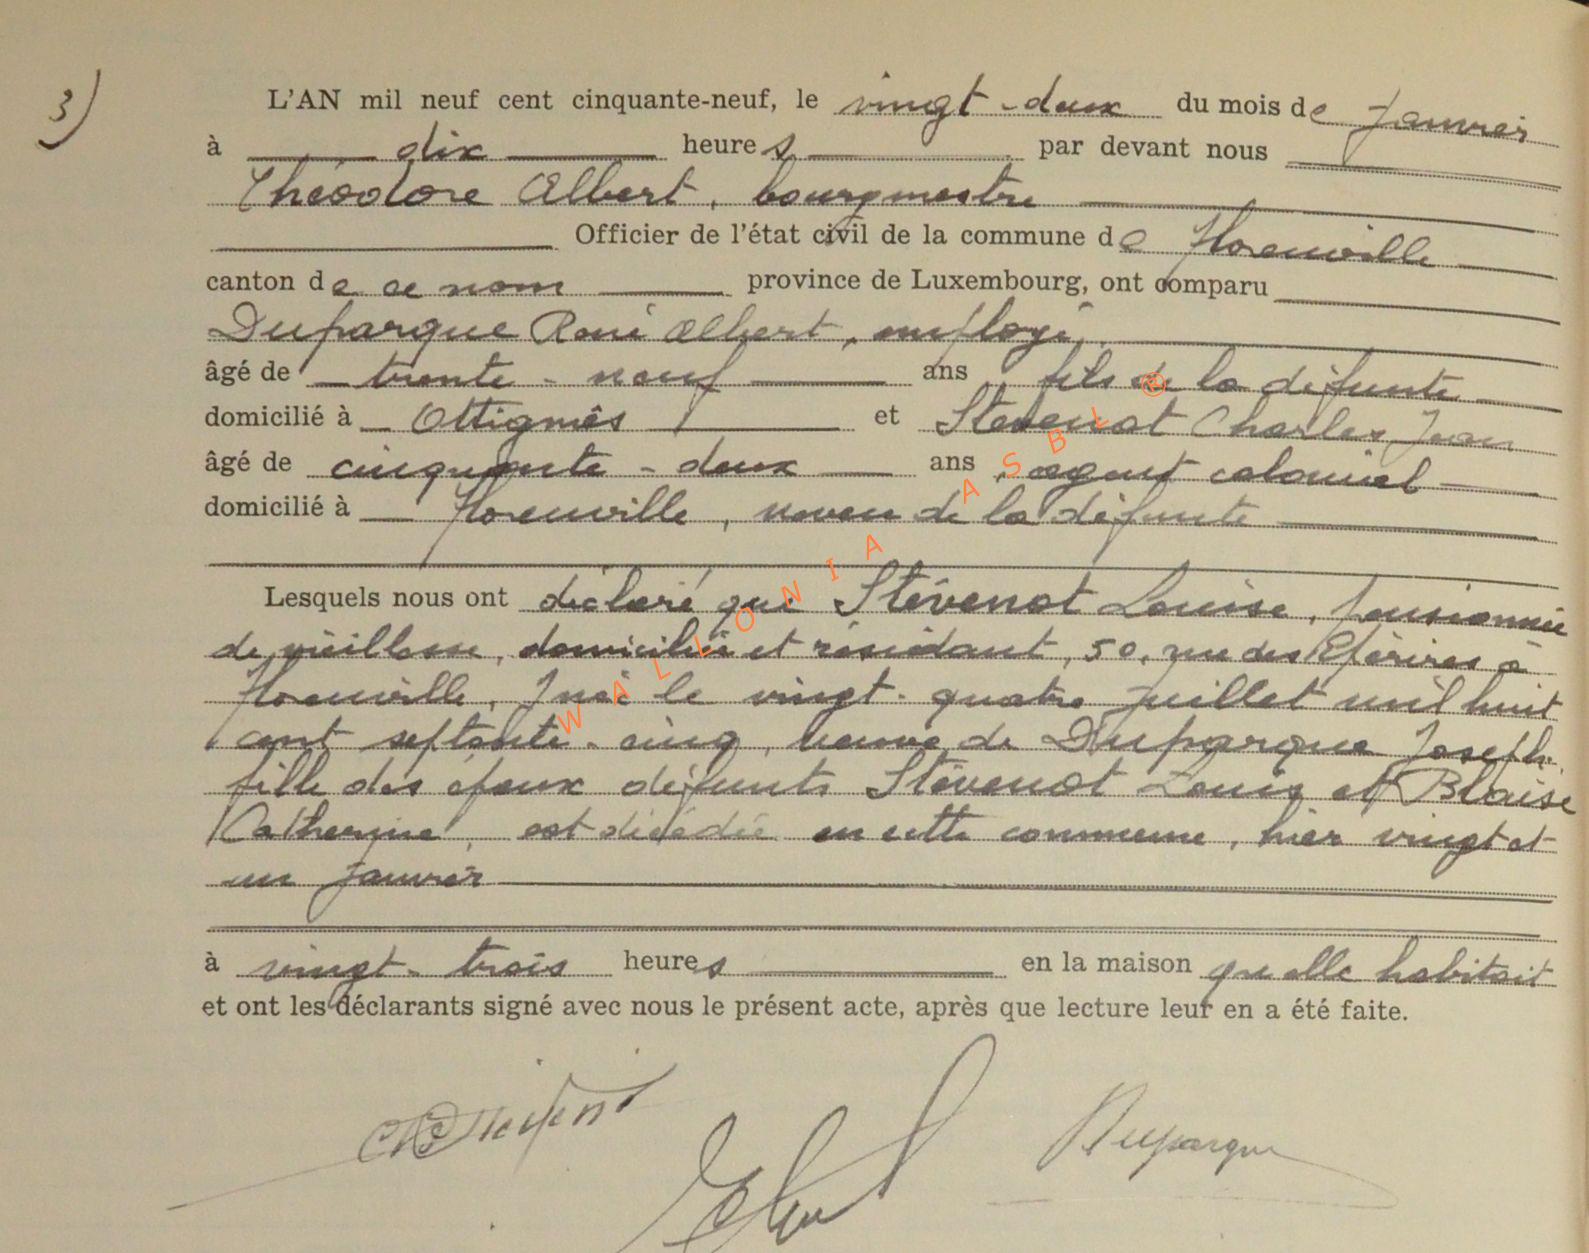 3)
L'AN mil neuf cent cinquante-neuf, le vingt-deux du mois de Janvier
à dix heures par devant nous
Théodore Albert, bourgmestre
Officier de l'état civil de la commune de Florenville
canton de ce nom province de Luxembourg, ont comparu
Duparque René Albert, employé,
âgé de trente-neuf ans fils de la défunte
domicilié à Ottignies et Stevenot Charles Jean
âgé de cinquante-deux ans, agent colonial
domicilié à Florenville, neveu de la défunte
Lesquels nous ont déclaré que Stévenot Louise, pensionnée
de vieillesse, domiciliée et résidant, 50, rue des à
Florenville, y née le vingt-quatre Juillet mil huit
cent septante-cinq, veuve de Duparque Joseph
fille des époux défunts Stévenot Louis et Blaise
Catherine, est décédée en cette commune, hier vingt et
un Janvier
à vingt-trois heures en la maison qu'elle habitait
et ont les déclarants signé avec nous le présent acte, après que lecture leur en a été faite.
Duparque
WALLONIA ASBL ®